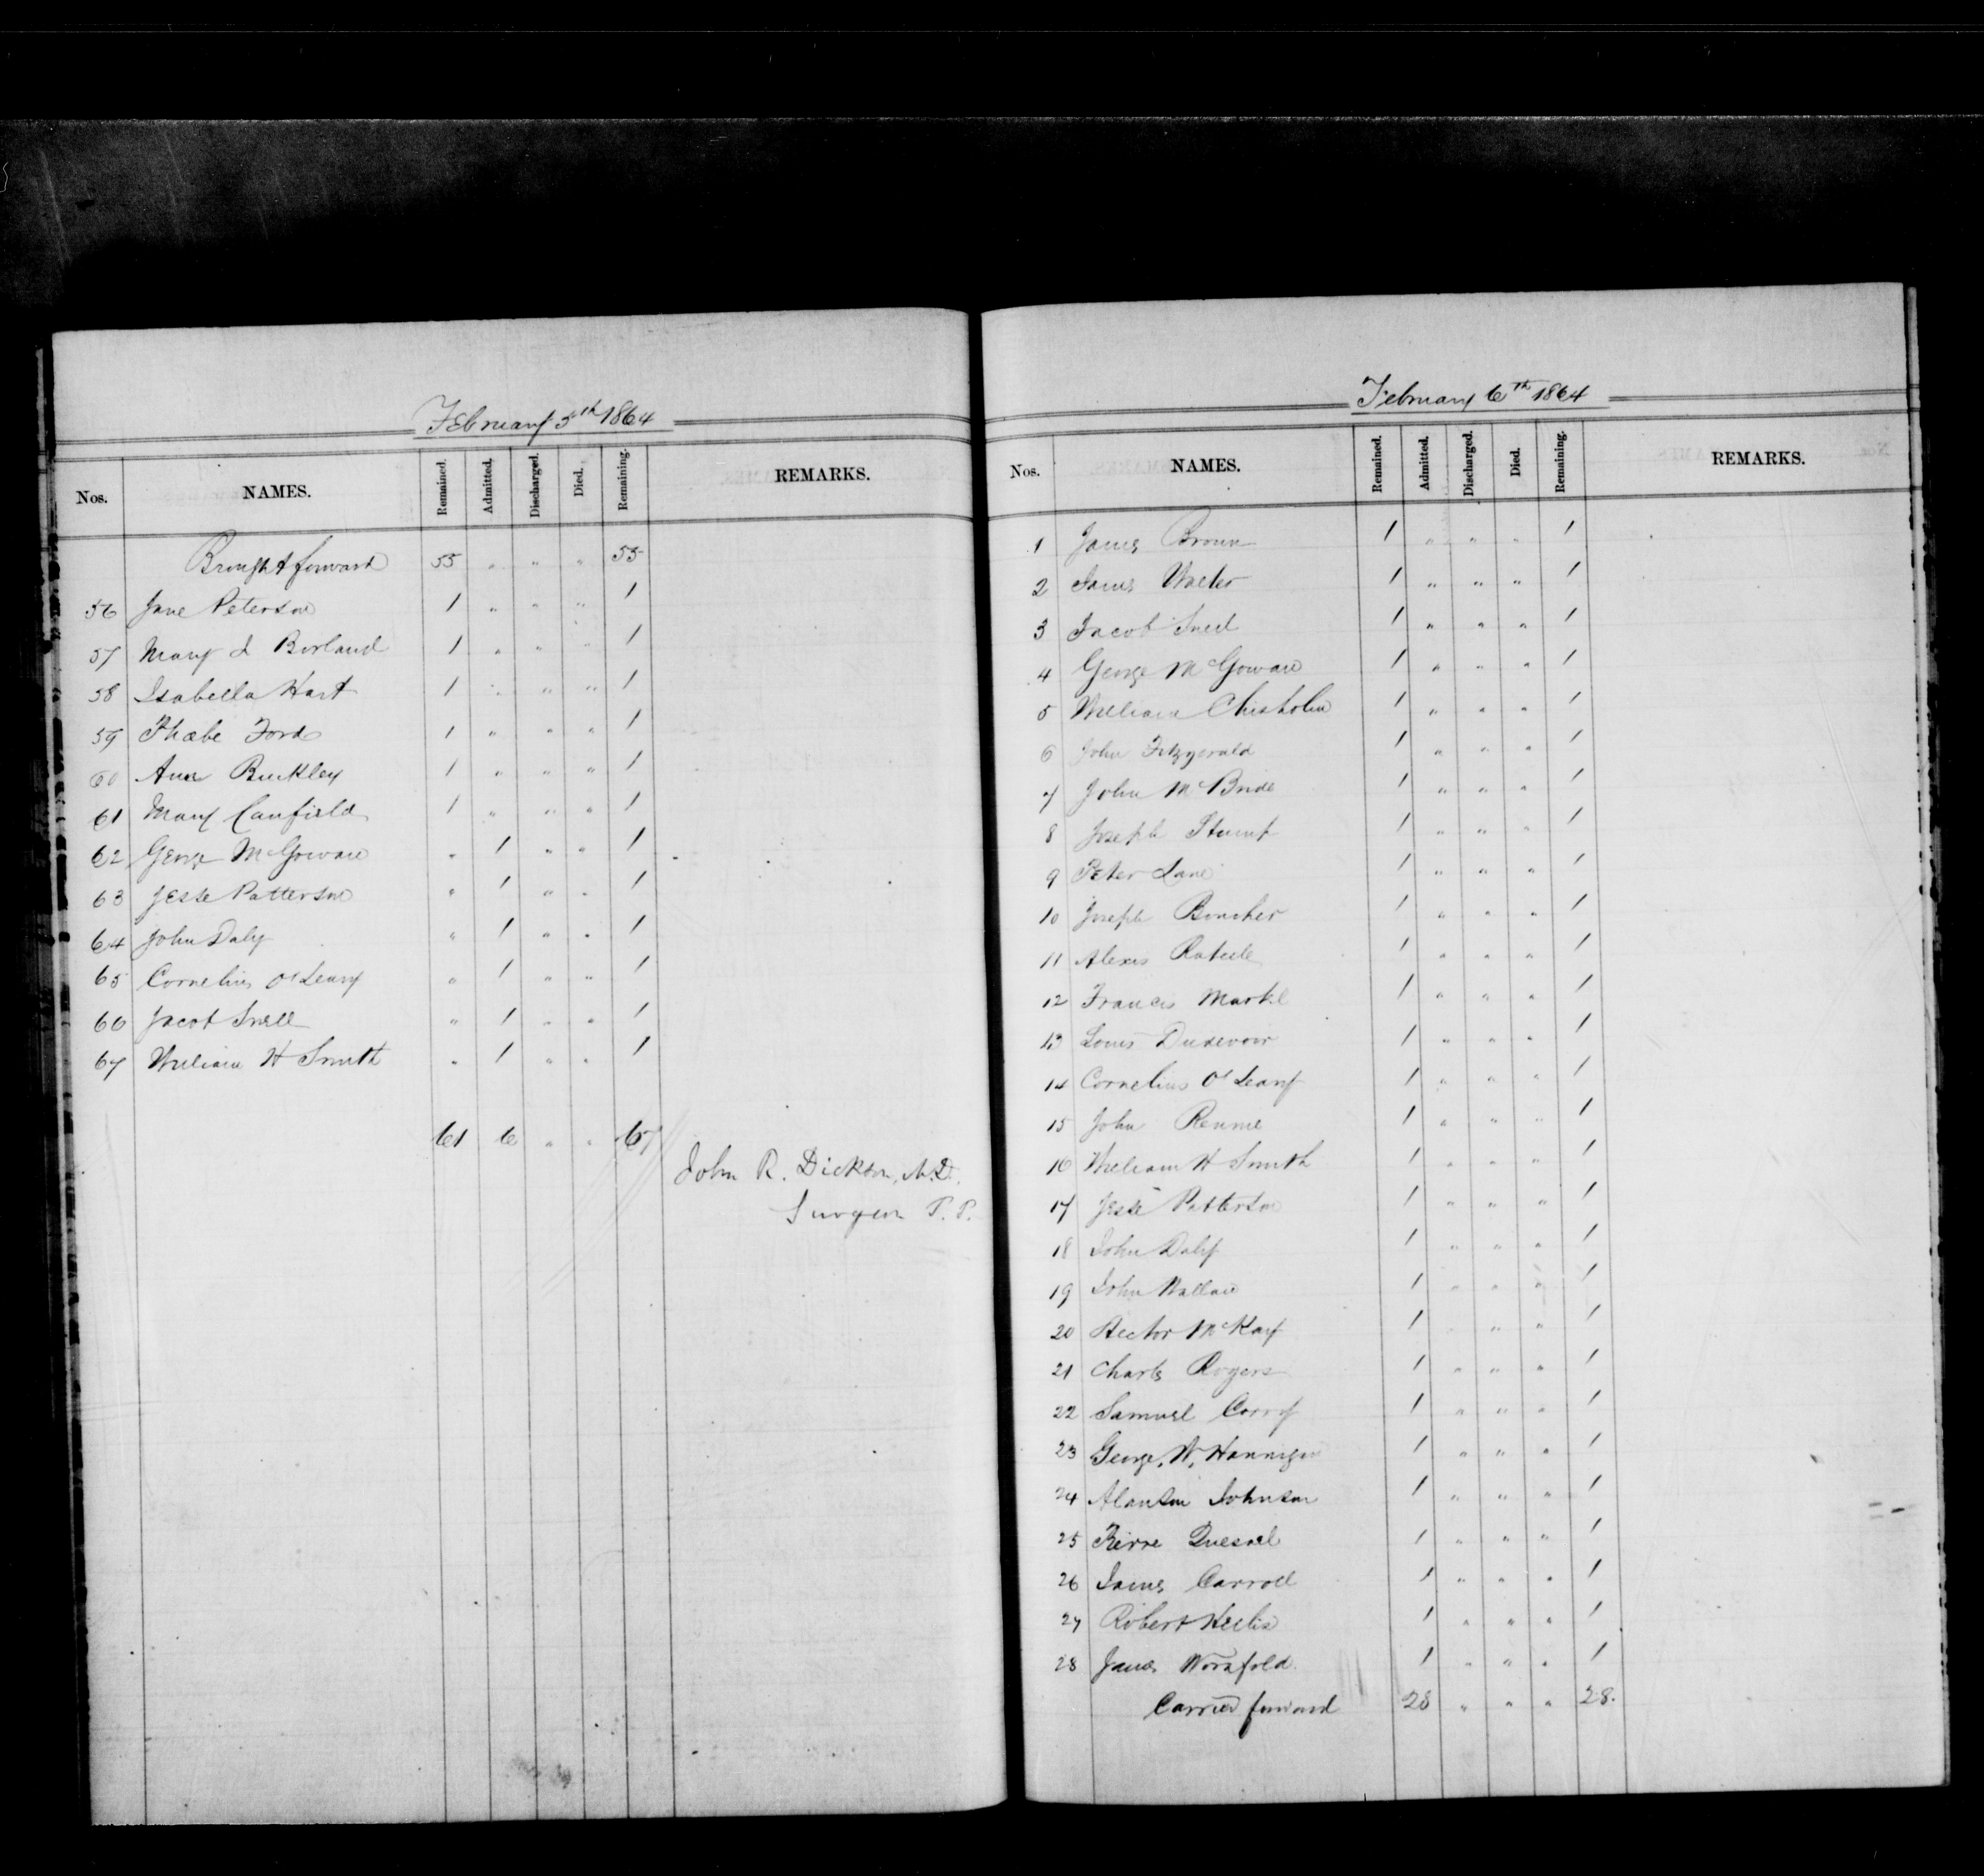 February 5th 1864
Nos. NAMES. Remained. Admitted. Discharged. Died. Remaining. REMARKS.
Brought forward 55 " " " 55
56 Jane Peterson 1 " " " 1
57 Mary J Borland 1 " " " 1
58 Isabella Hart 1 " " " 1
59 Phœbe Ford 1 " " " 1
60 Ann Buckley 1 " " " 1
61 Mary Canfield 1 " " " 1
62 George McGowan " 1 " " 1
63 Jesse Patterson " 1 " " 1
64 John Daly " 1 " " 1
65 Cornelius O'Leary " 1 " " 1
66 Jacob Snell " 1 " " 1
67 William H Smith " 1 " " 1
61 6 " " 67
John R. Dickson, M.D.
Surgeon P. P.
February 6th 1864
Nos. NAMES. Remained. Admitted. Discharged. Died. Remaining. REMARKS.
1 James Brown 1 " " " 1
2 James Walter 1 " " " 1
3 Jacob Snell 1 " " " 1
4 George McGowan 1 " " " 1
5 William Chisholm 1 " " " 1
6 John Fitzgerald 1 " " " 1
7 John McBride 1 " " " 1
8 Joseph Stump 1 " " " 1
9 Peter Lane 1 " " " 1
10 Joseph Boucher 1 " " " 1
11 Alexis 1 " " " 1
12 Francis Markl 1 " " " 1
13 Louis 1 " " " 1
14 Cornelius O'Leary 1 " " " 1
15 John Rennie 1 " " " 1
16 William H Smith 1 " " " 1
17 Jesse Patterson 1 " " " 1
18 John Daly 1 " " " 1
19 John Wallace 1 " " " 1
20 Hector McKay 1 " " 1
21 Charles Rogers 1 " " " 1
22 Samuel Corry 1 " " " 1
23 George. W. Hannigan 1 " " " 1
24 Alanson Johnson 1 " " " 1
25 Pierre Quesnel 1 " " " 1
26 James Carroll 1 " " " 1
27 Robert 1 " " " 1
28 James Worsfold 1 " " " 1
Carried forward 28 " " " 28.